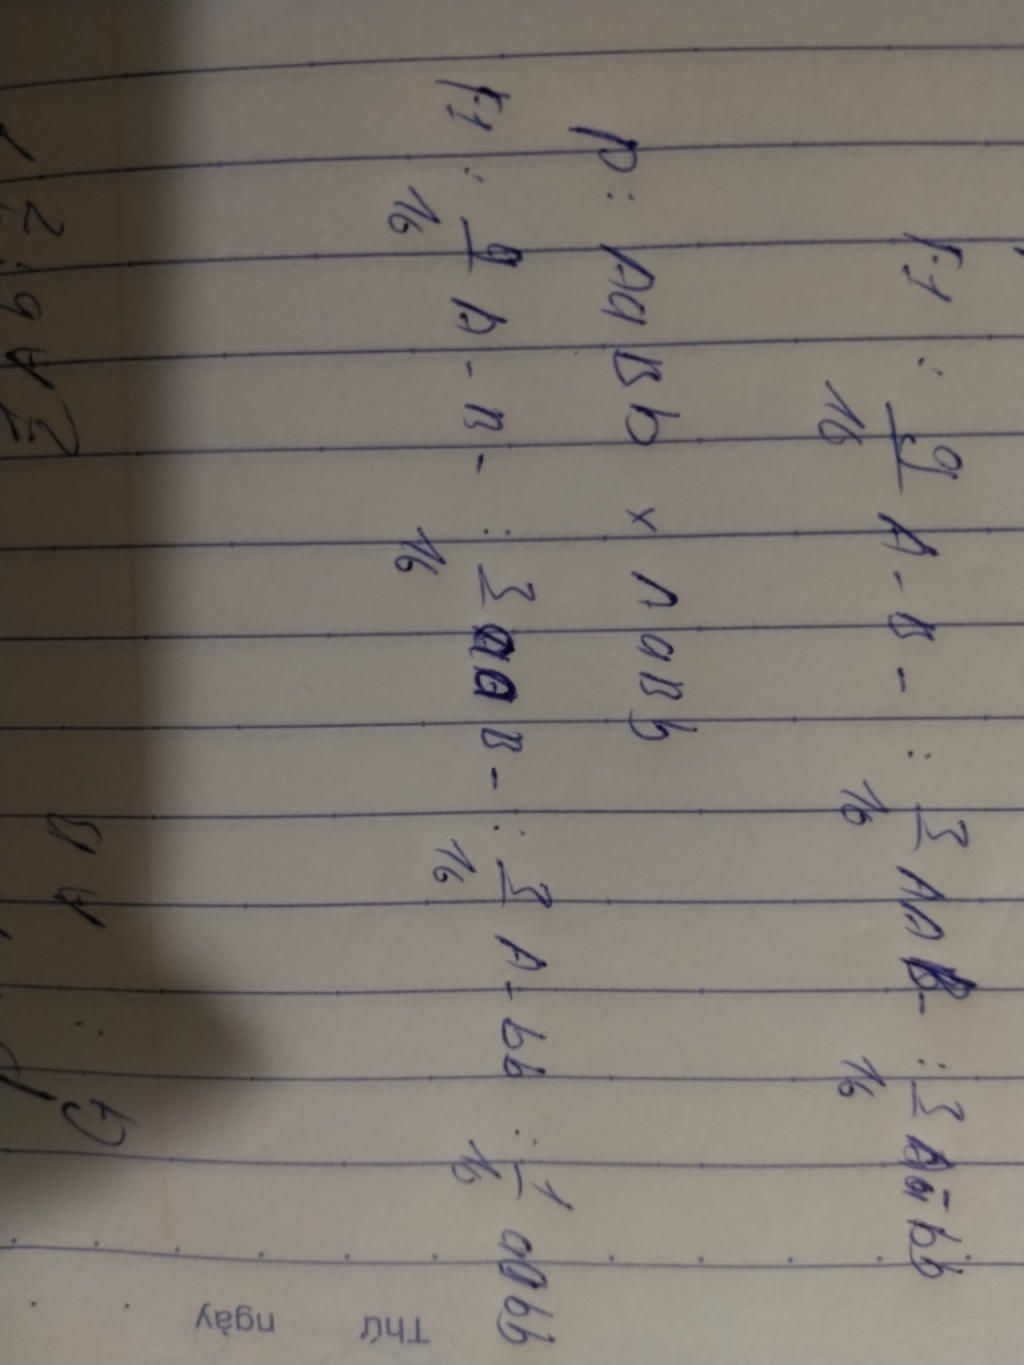 F1 : 9/16 A-B- : 3/16 AAB- : 3/16 A-bb
P: AaBb x AaBb
F1 : 9/16 A-B- : 3/16 aaB- : 3/16 A-bb : 1/16 aabb
Thứ ngày